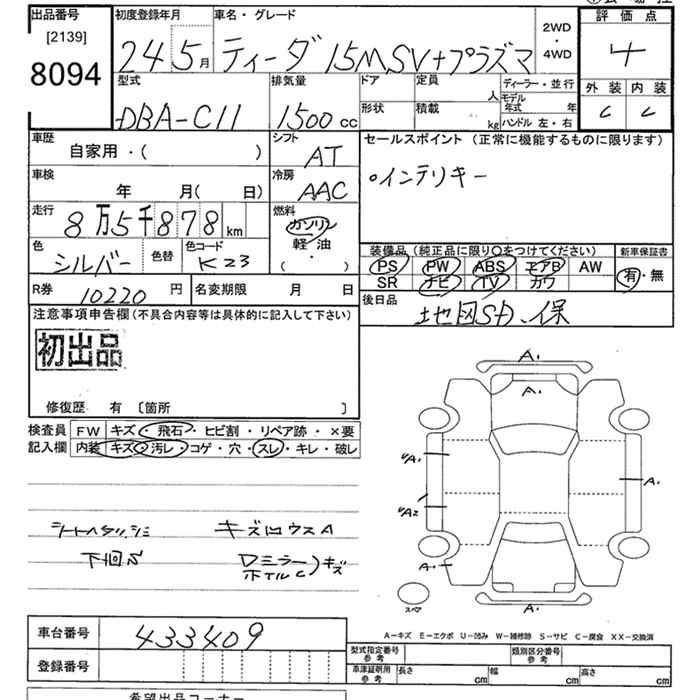 出品番号
[2139]
8094
初度登録年月
24 5月
車名・グレード
ティーダ 15M SV+プラズマ
2WD
・
4WD
評価点
4
外装 内装
C C
型式
DBA-C11
排気量
1500 cc
ドア
形状
定員
人
積載
kg
ディーラー・並行
モデル年式 年
ハンドル 左・右
車歴
自家用・( )
シフト
AT
セールスポイント (正常に機能するものに限ります)
○インテリキー
車検
年 月( 日)
冷房
AAC
走行
8万5千878km
燃料
ガソリン
軽油
( ・ )
色
シルバー
色替
色コード
K23
装備品 (純正品に限り○をつけてください)
PS PW ABS エアB AW
SR ナビ TV カワ
新車保証書
有・無
R券
10220円
名変期限 月 日
後日品
地図SD、保
注意事項申告欄(不具合内容等は具体的に記入して下さい)
初出品
修復歴 有 〔箇所 〕
検査員
記入欄
FW キズ・飛石・ヒビ割・リペア跡・×要
内装 キズ・汚レ・コゲ・穴・スレ・キレ・破レ
シートヘタリ、シミ
キズ凹ウスA
下回S
Dミラー
ホイルC
キズ
A・
A・
A・
A2
A・
A・
A・
スペア
A-キズ E-エクボ U-凹み W-補修跡 S-サビ C-腐食 XX-交換済
車台番号
433409
登録番号
型式指定番号
参考
類別区分番号
参考
車庫証明用
参考
長さ cm
幅 cm
高さ cm
希望出品コーナー